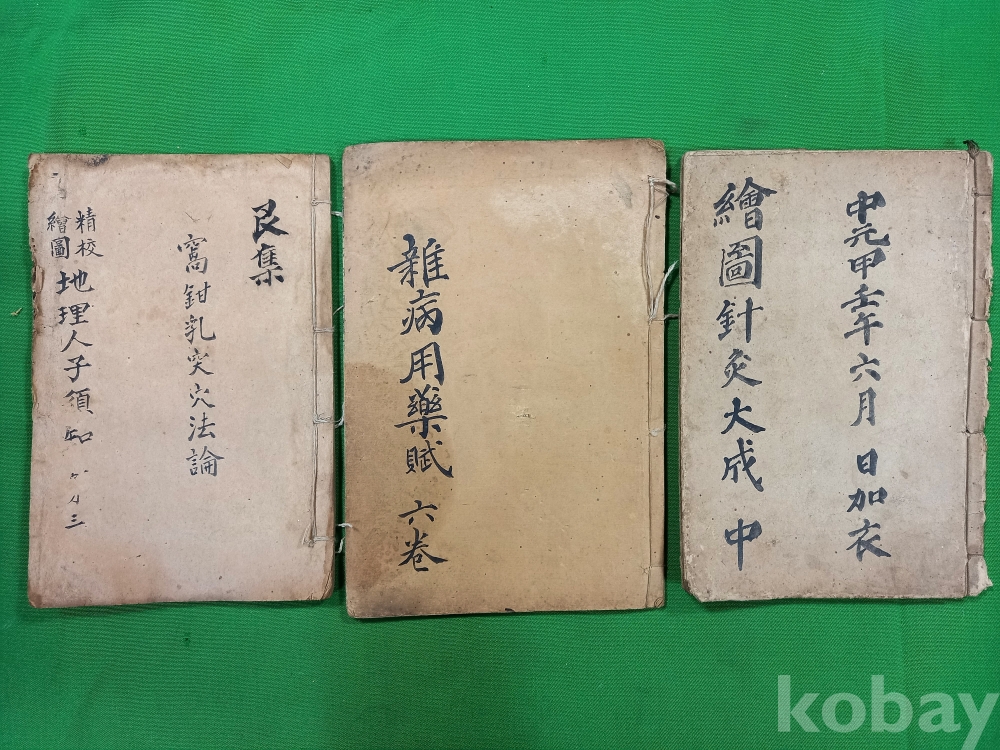 艮集
窩鉗乳突穴法論
精校
繪圖
地理人子須知
雜病用藥賦 六卷
中元甲壬午六月 日加衣
繪圖針灸大成 中
kobay